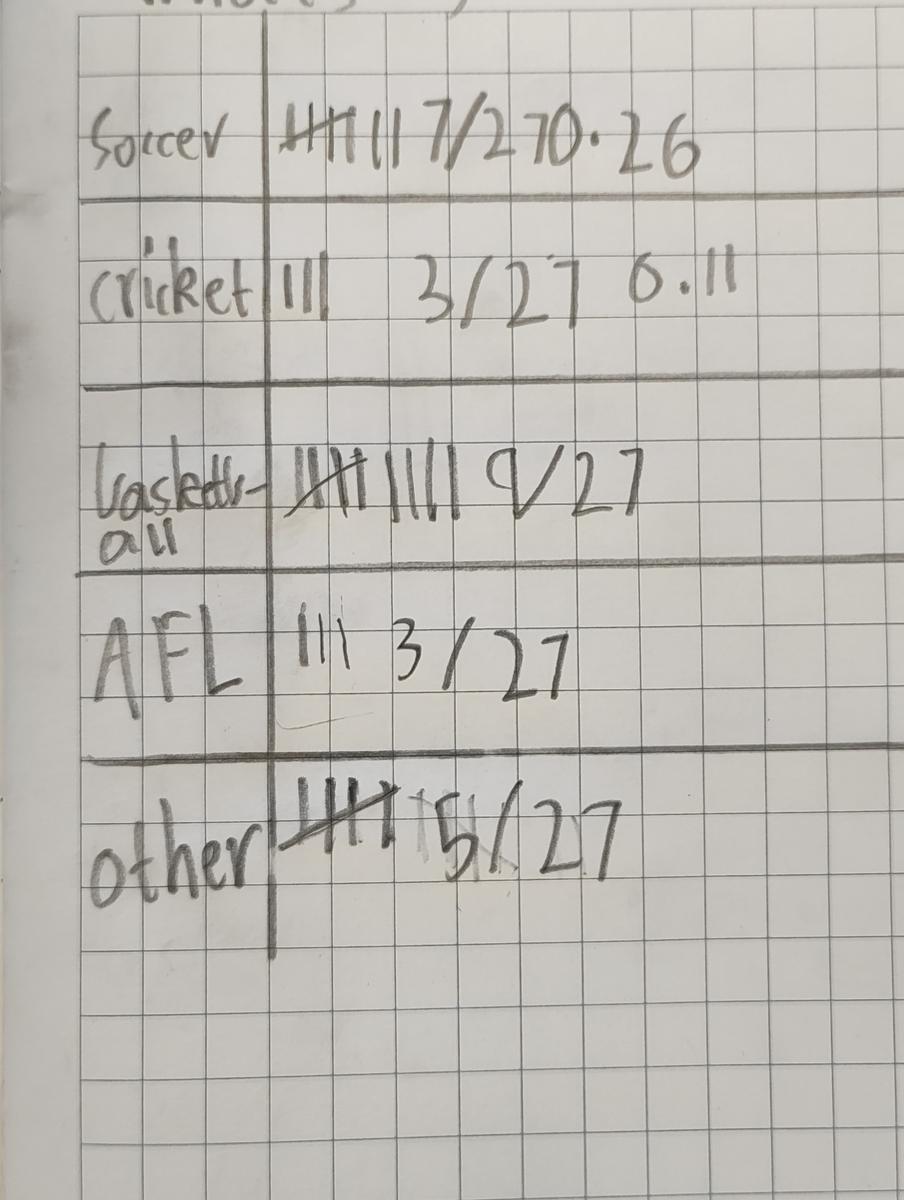 Soccer 𝍸 II 7/27 0.26
cricket III 3/27 0.11
basketb-
all 𝍸 IIII 9/27
AFL III 3/27
other 𝍸 5/27